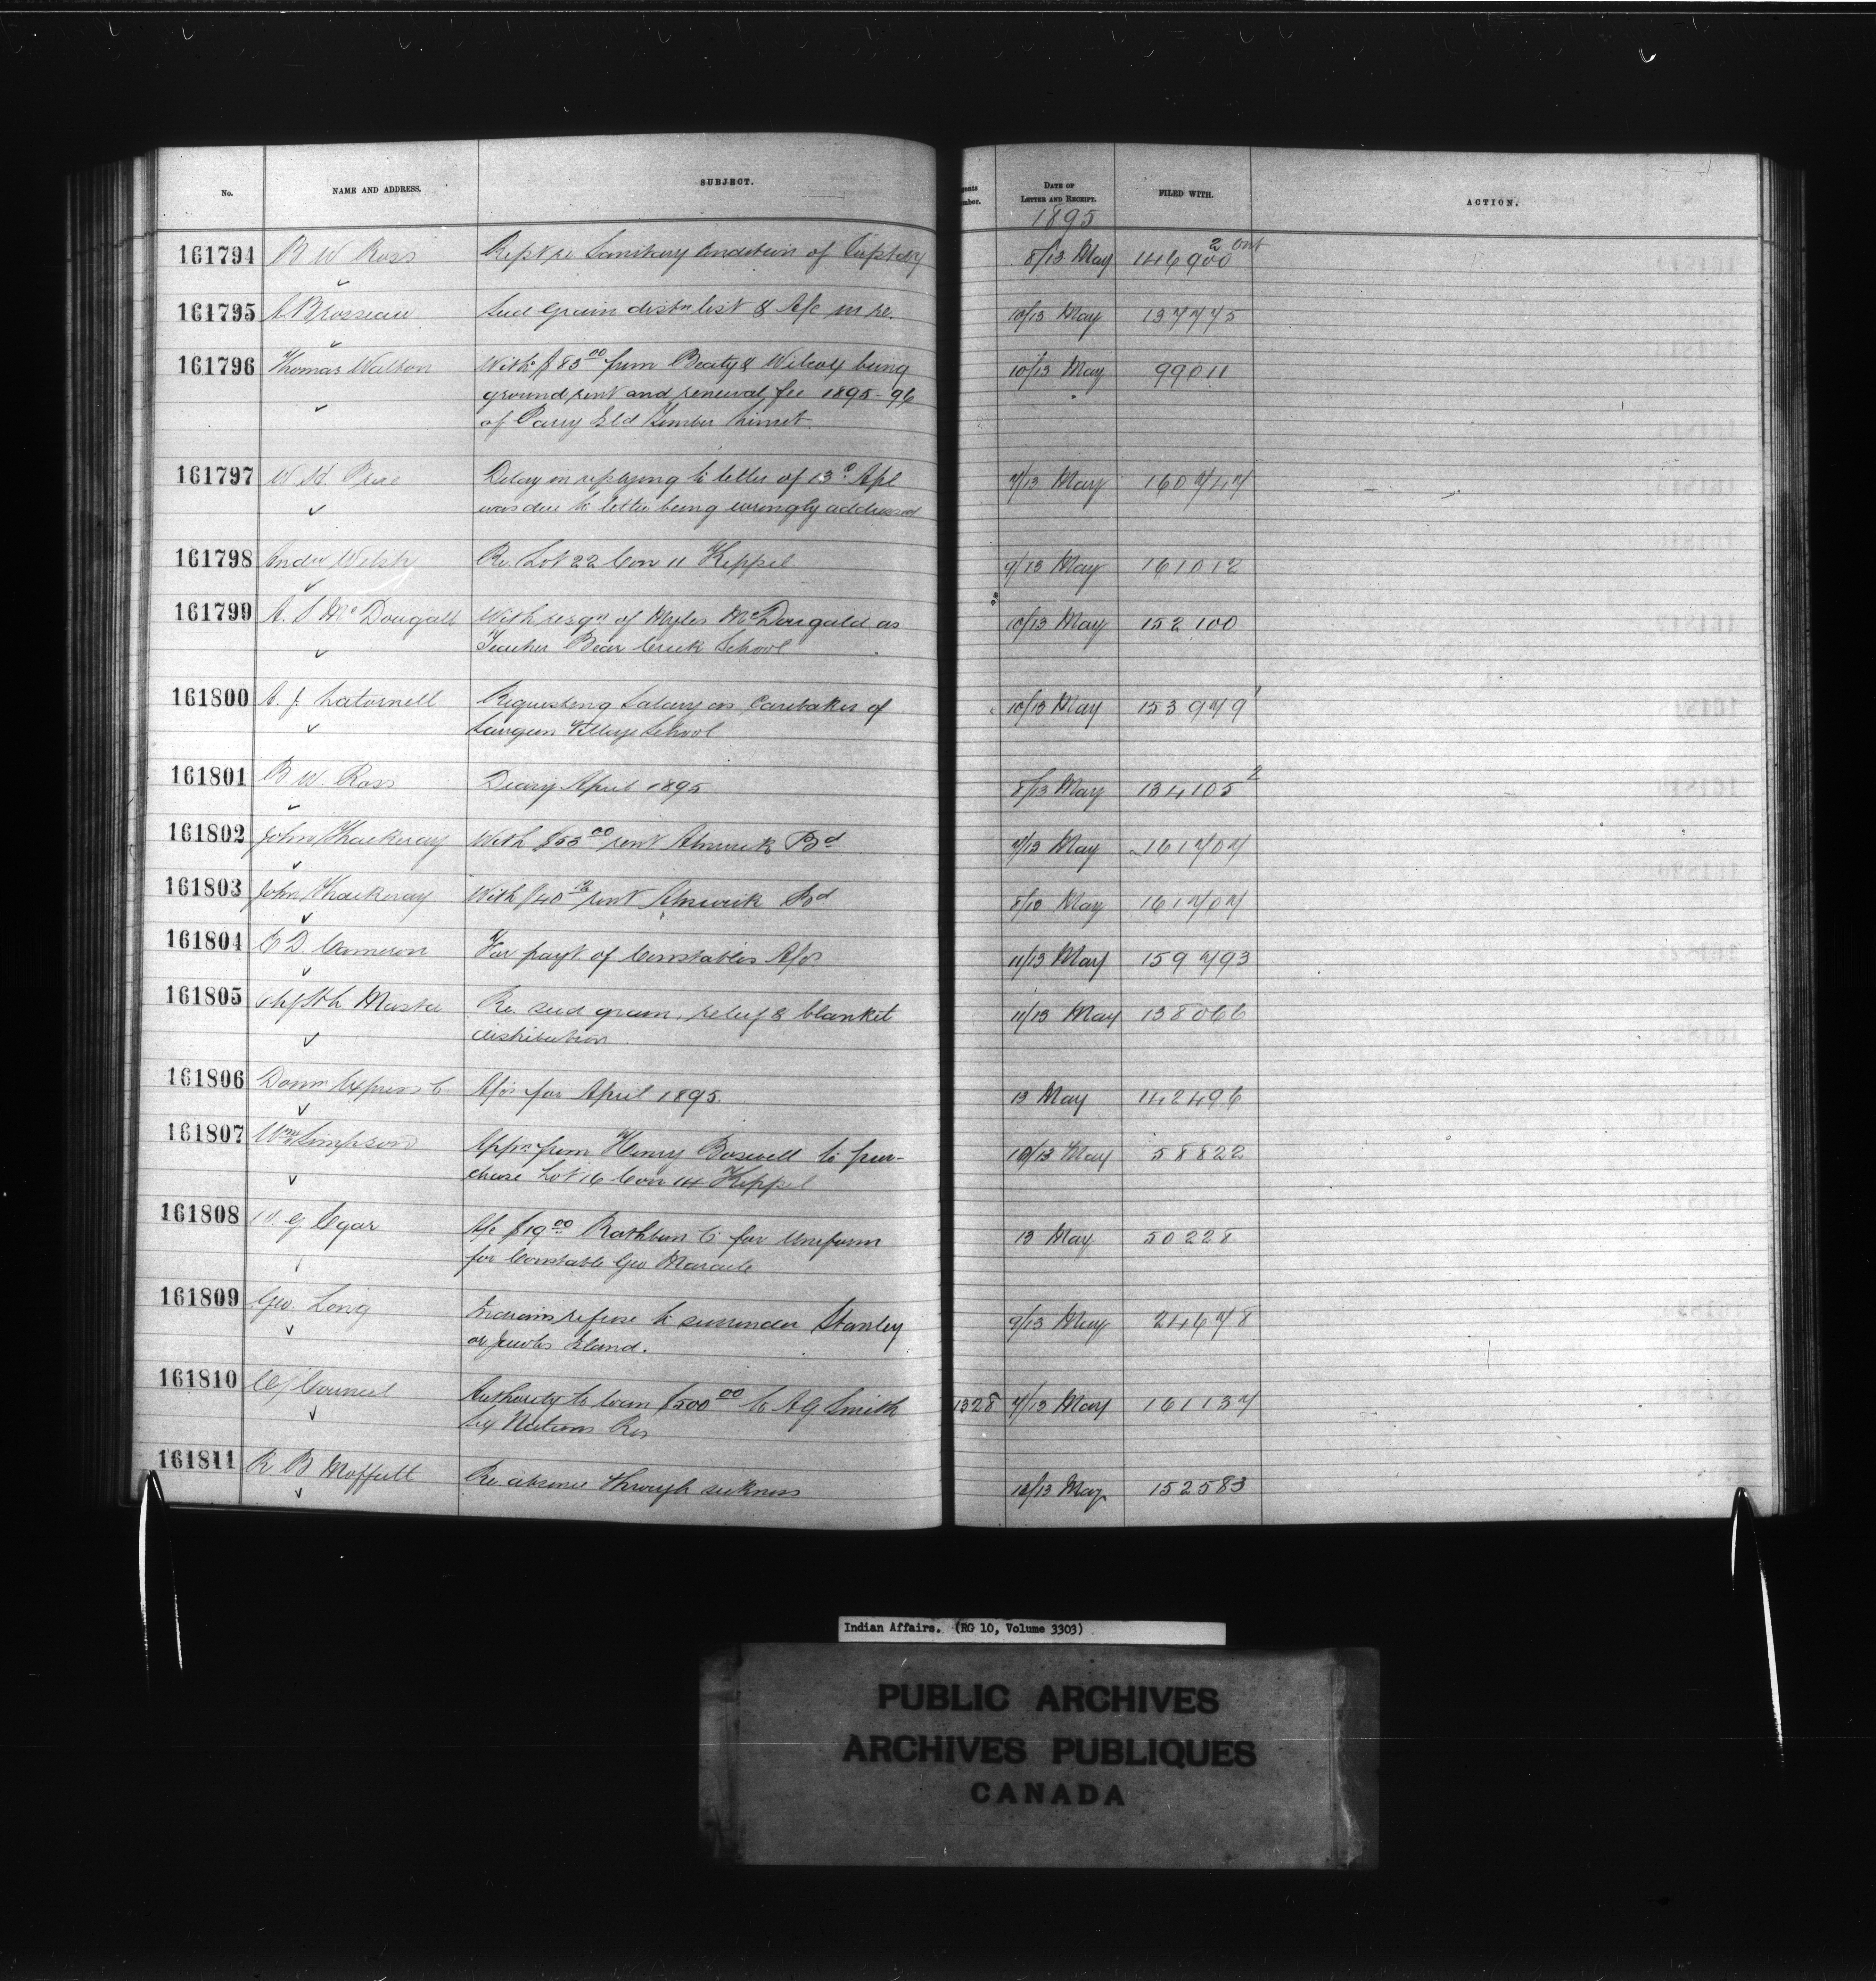 No. NAME AND ADDRESS. SUBJECT. DATE OF LETTER AND RECEIPT. FILED WITH. ACTION.
1895
161794 B W Ross Rept re Sanitary Condition of Agency 8/13 May 146900 2 Ont
161795 A Brosseau Seed Grain distn list & A/c in re. 10/13 May 137775
161796 Thomas Walton With $83 00 from Beaty & Wilcox being 10/13 May 99011
ground rent and renewal fee 1895-96
of Parry Isld Timber Limit
161797 W H Price Delay in replying to letter of 13 Apl 7/13 May 160747
was due to letter being wrongly addressed
161798 Andw Welsh Re. Lot 22 Con 11 Keppel 9/13 May 161012
161799 A. S McDougall With resgn of Myles McDougald as 10/13 May 152100
Teacher Bear Creek School
161800 A. J. Latornell Requesting Salary as Caretaker of 10/13 May 153979 1
Saugeen Village School
161801 B W. Ross Diary April 1895 8/13 May 134105 2
161802 John Thackeray With $53 00 rent Alnwick Bd 7/13 May 161707
161803 John Thackeray With $40 12 rent Alnwick Bd 8/13 May 161707
161804 E D Cameron For payt of Constables A/cs 11/13 May 159793
161805 Re. seed grain, relief & blanket 11/13 May 138066
distribution
161806 Domn Express Co A/cs for April 1895. 13 May 142496
161807 Wm Simpson Appn from Henry Boswell to pur-
chase Lot 16 Con 14 Keppel 10/13 May 58822
161808 G Egar A/c $19 00 Rathbun Co for Uniform 13 May 50228
for Constable Geo Maracle
161809 Geo. Long Indians refuse to surrender Stanley 9/13 May 24678
or Jacobs Island.
161810 C/ Council Authority to loan $500 00 to A G Smith 1328 7/13 May 161137
Six Nations Res
161811 R B Moffatt Re absence through sickness 11/13 May 152583
Indian Affairs. (RG 10, Volume 3303)
PUBLIC ARCHIVES
ARCHIVES PUBLIQUES
CANADA